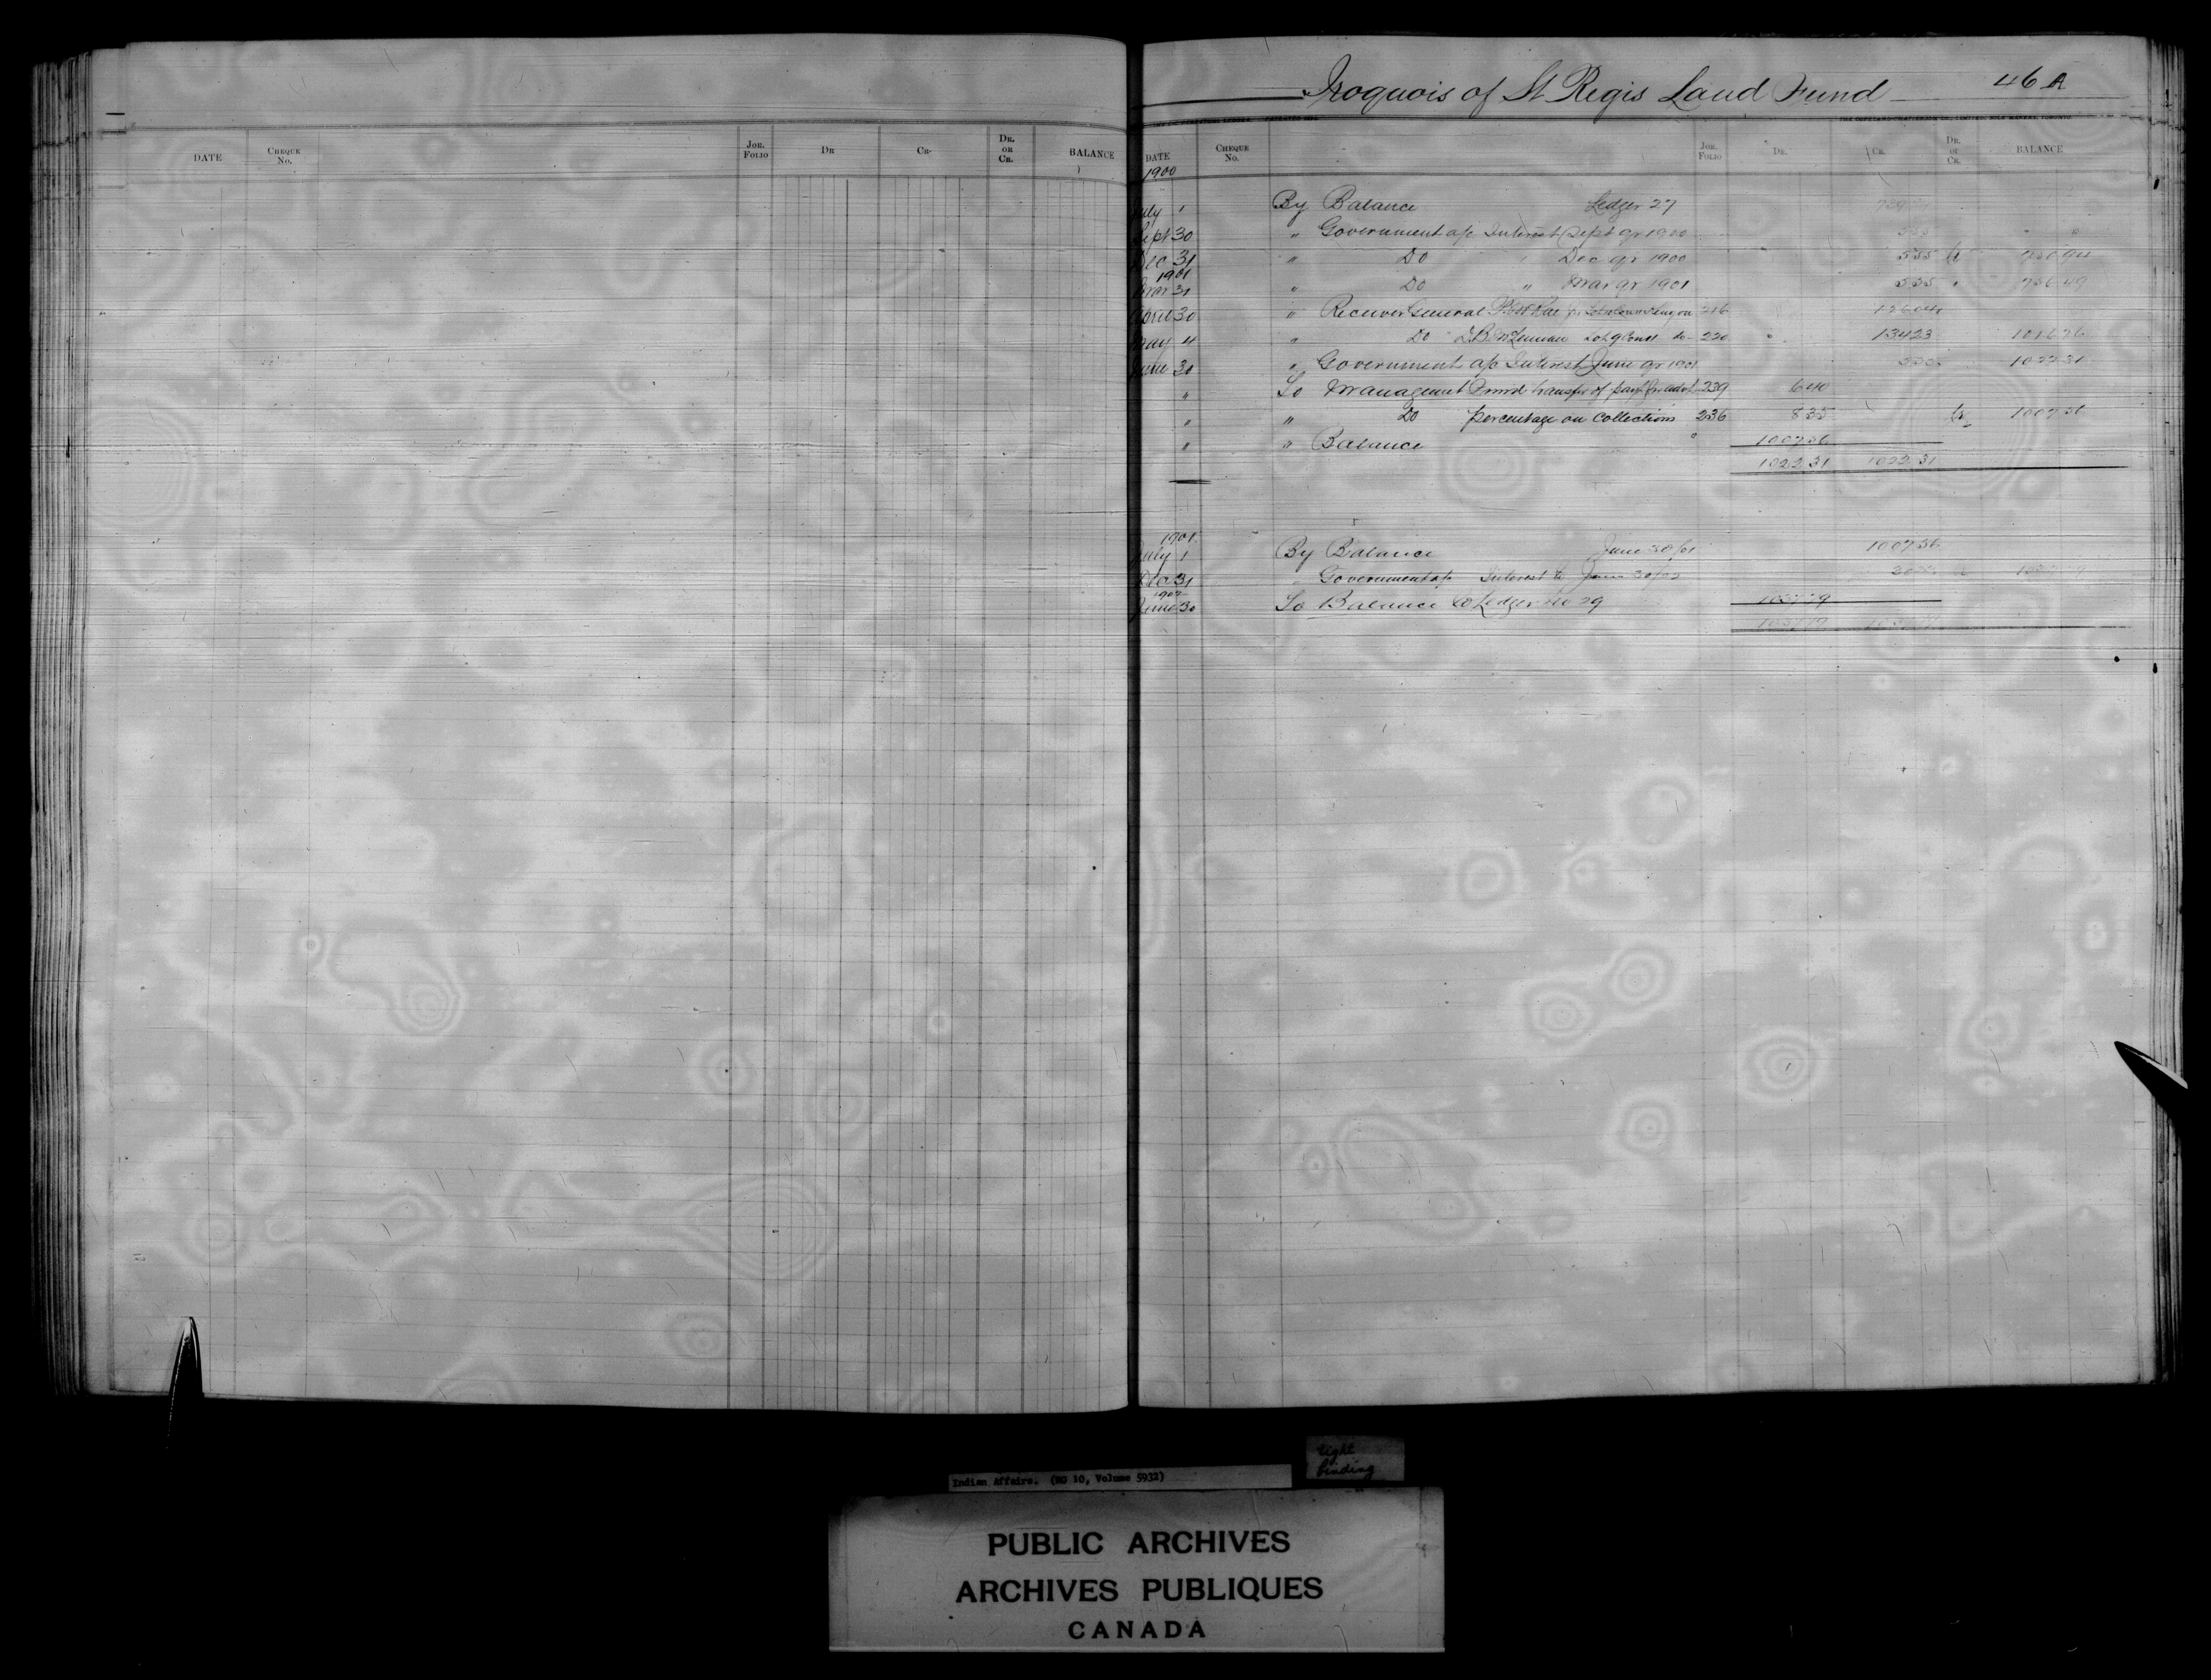 Iroquois of St Regis Land Fund 46 A
DATE CHEQUE No. JOR. FOLIO DR CR. DR. OR CR. BALANCE
DATE CHEQUE No. JOR. FOLIO DR. CR. DR. OR CR. BALANCE
1900
July 1 By Balance Ledger 27
Sept 30 " Government a/c Interest Sept qr 1900
Dec 31 " Do " Dec qr 1900 5 55
1901
Mar 31 " Do " Mar qr 1901 5 55 " 756 49
April 30 " Receiver General 216 126 04
May 4 " Do D.B. McLennan Lot 9 220 134 23 1016 76
June 30 " Government a/c Interest June qr 1901 1022 31
" To Management Fund transfer of payt for advt 239 6 40
" " Do percentage on collections 236 8 35 Cr 1007 56
" " Balance 1007 56
1022 31 1022 31
1901
July 1 By Balance June 30/01 1007 56
Dec 31 " Government a/c Interest to June 30/02
1902
June 30 To Balance to Ledger No 29
Indian Affairs. (RG 10, Volume 5932)
tight
binding
PUBLIC ARCHIVES
ARCHIVES PUBLIQUES
CANADA